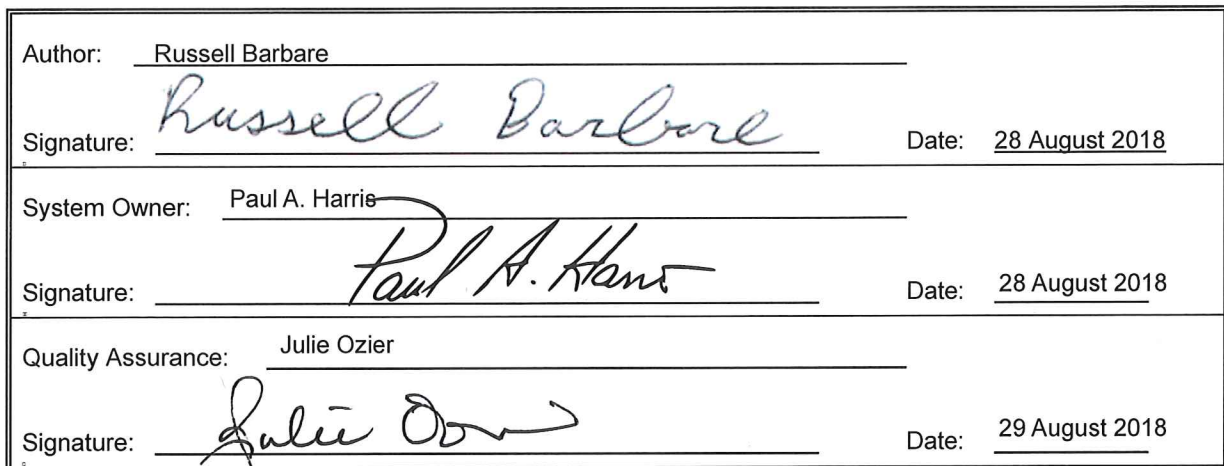 Author: Russell Barbare
Signature: Russell Barbare Date: 28 August 2018
System Owner: Paul A. Harris
Signature: Paul A. Harris Date: 28 August 2018
Quality Assurance: Julie Ozier
Signature: Julie Ozier Date: 29 August 2018